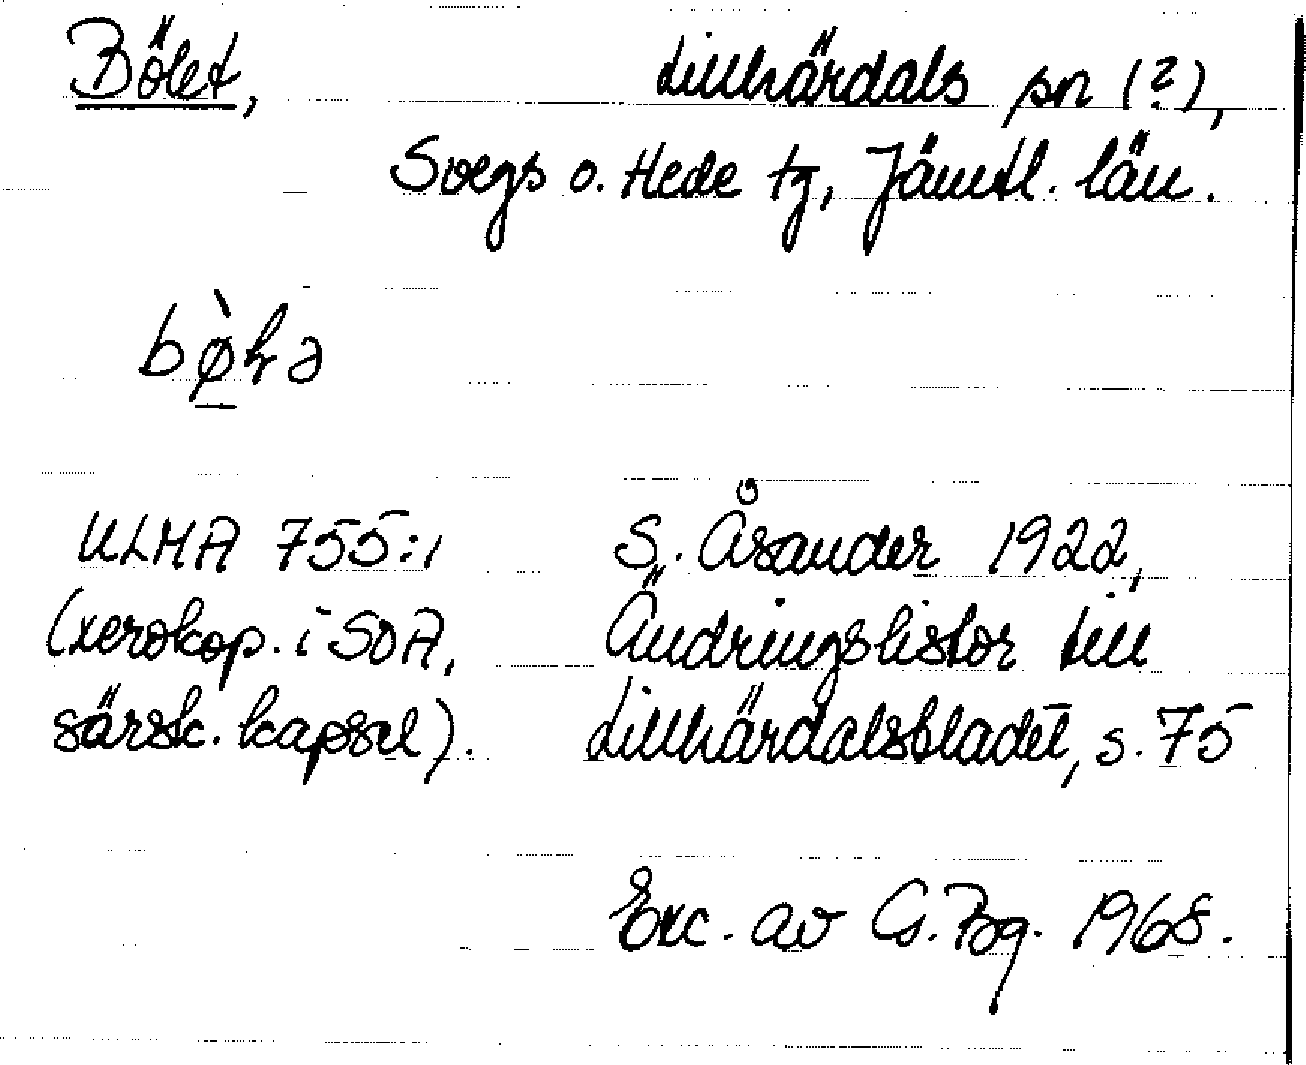 Bölet, Lillhärdals sn (?),
Svegs o. Hede tg, Jämtl. län.
ULMA 755:1 S. Åsander 1922,
(xerokop. i SOA, Ändringslistor till
särsk. kapsel). Lillhärdalsbladet, s. 75
Exc. av G. Bg. 1968.